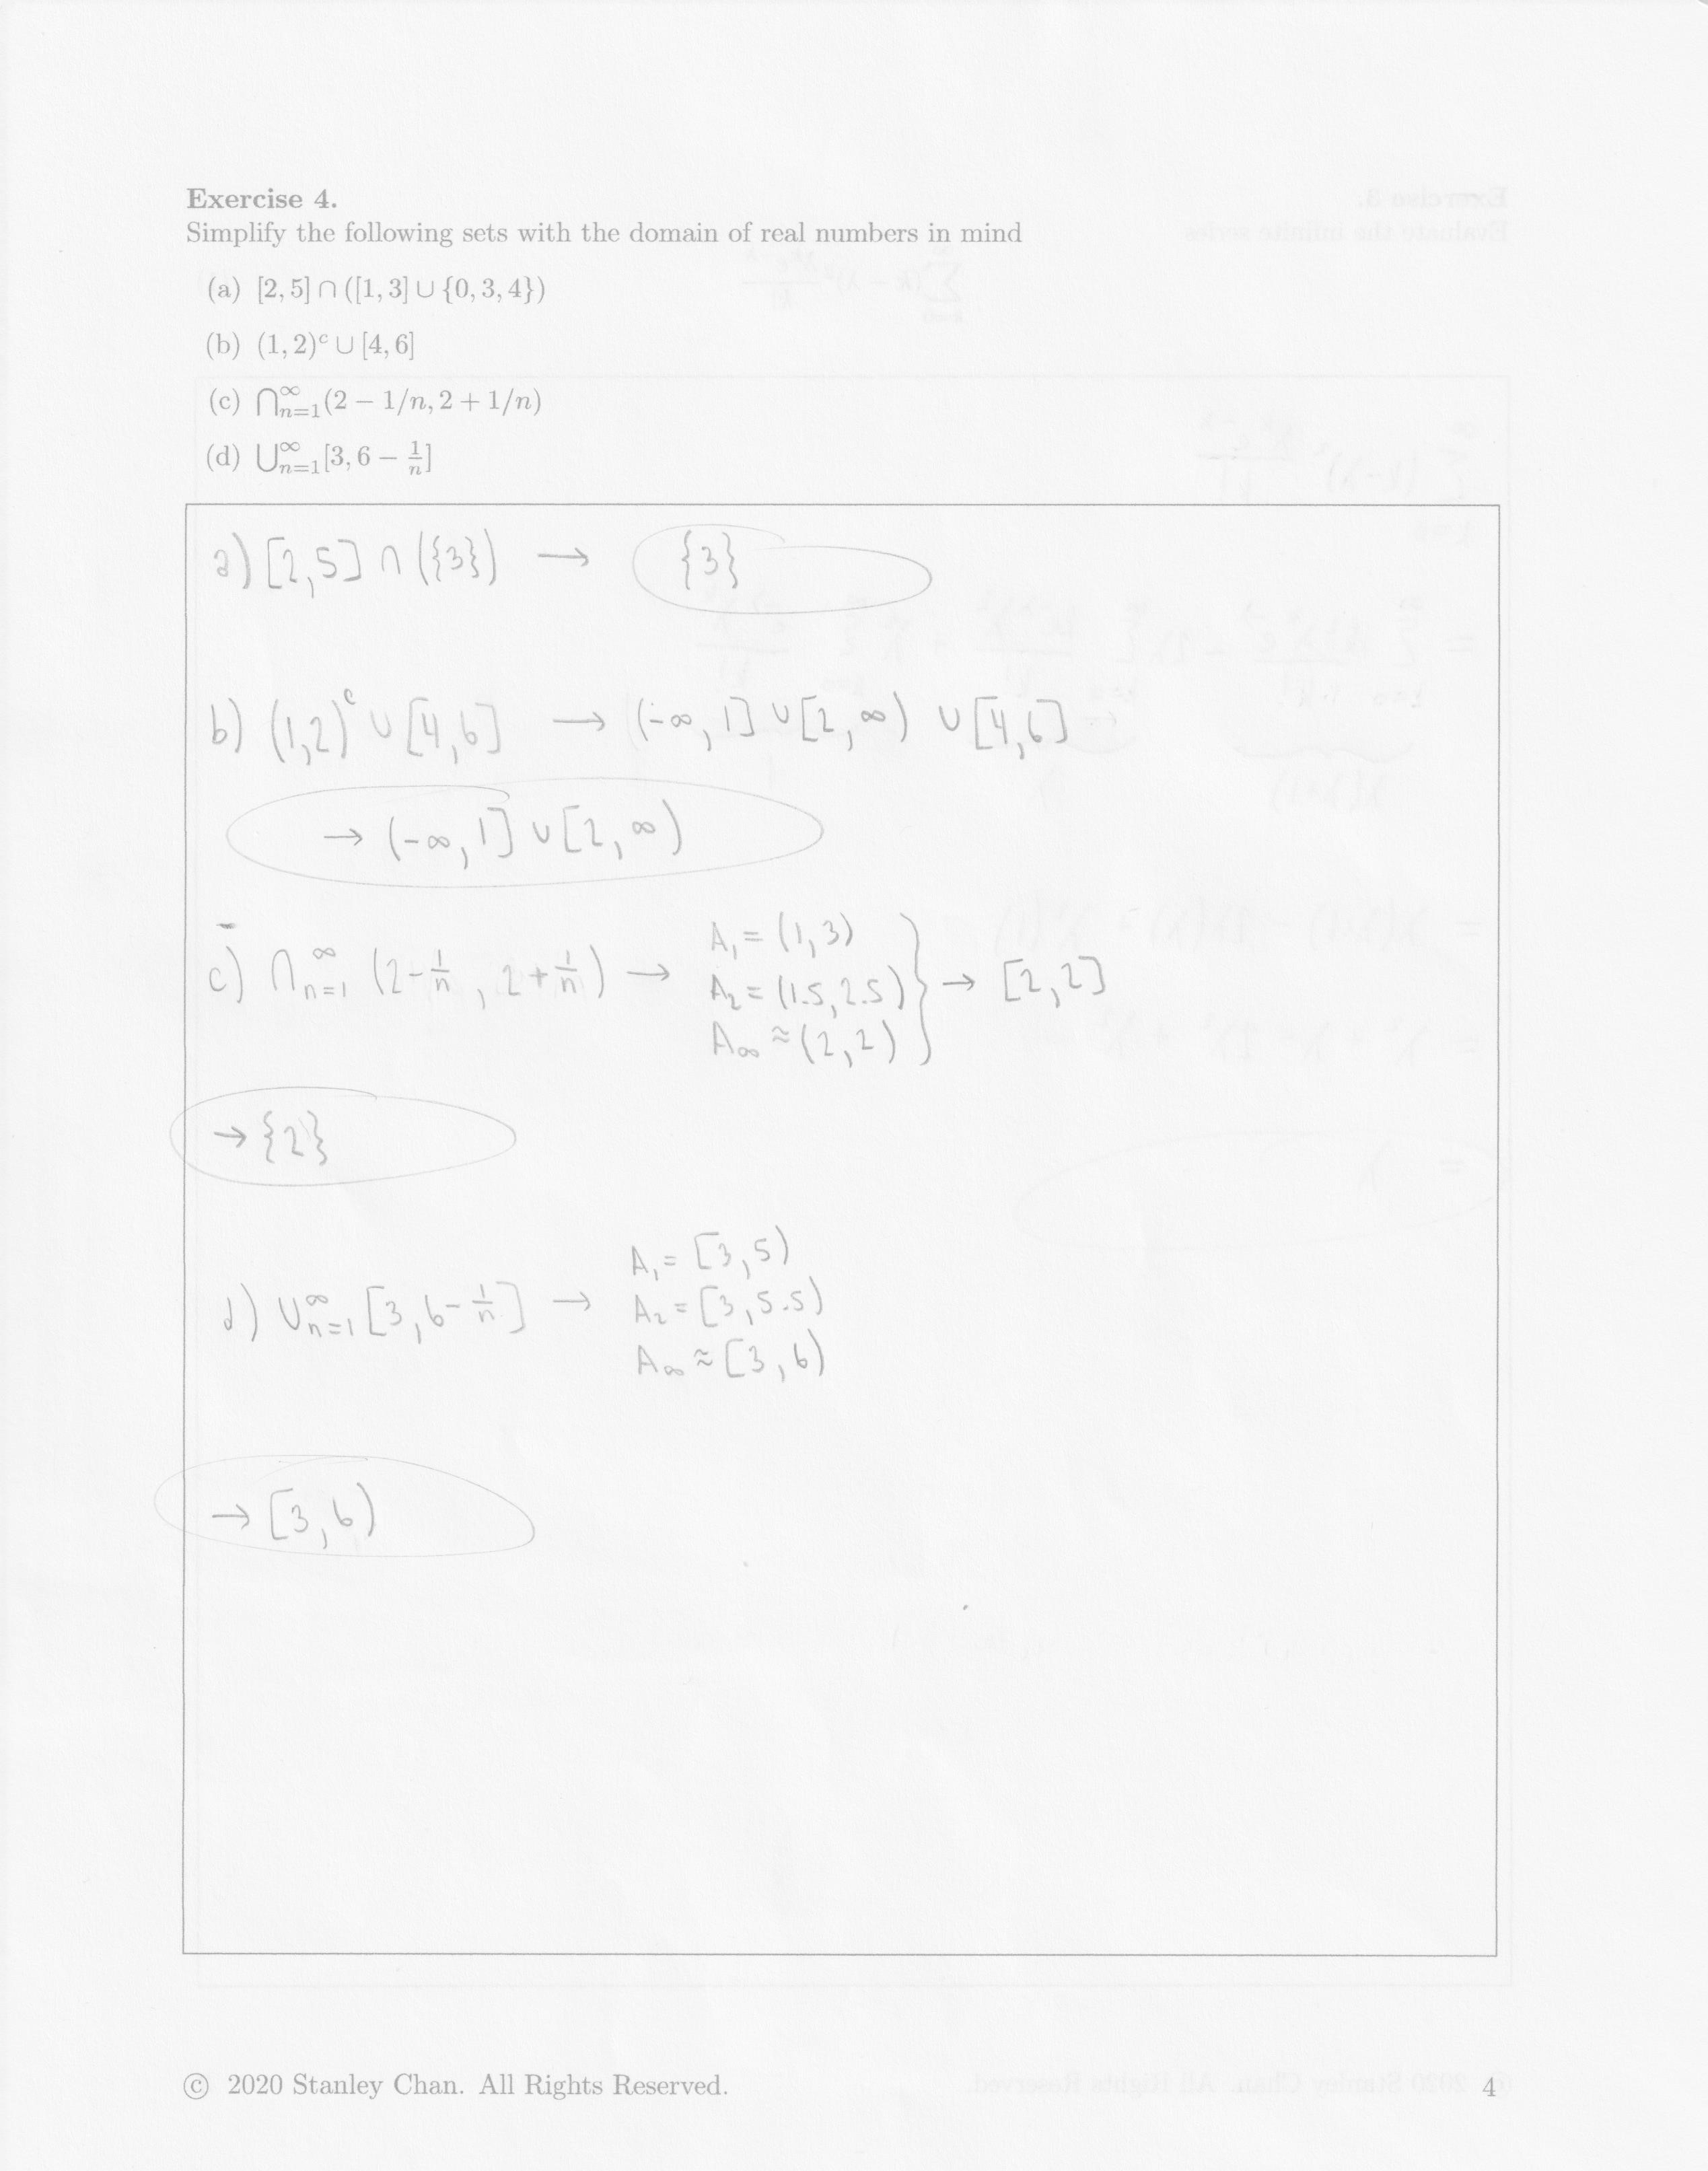 Exercise 4.
Simplify the following sets with the domain of real numbers in mind
(a) [2, 5] ∩ ([1, 3] ∪ {0, 3, 4})
(b) (1, 2)ᶜ ∪ [4, 6]
(c) ⋂_{n=1}^∞ (2 − 1/n, 2 + 1/n)
(d) ⋃_{n=1}^∞ [3, 6 − 1/n]
a) [2,5] ∩ ({3}) → {3}
b) (1,2)ᶜ ∪ [4,6] → (-∞, 1] ∪ [2, ∞) ∪ [4,6]
→ (-∞, 1] ∪ [2, ∞)
c) ⋂_{n=1}^∞ (2-1/n, 2+1/n) → A₁ = (1,3)
A₂ = (1.5, 2.5) } → [2,2]
A∞ ≈ (2,2)
→ {2}
d) ∪_{n=1}^∞ [3, 6-1/n] → A₁ = [3,5)
A₂ = [3,5.5)
A∞ ≈ [3,6)
→ [3,6)
© 2020 Stanley Chan. All Rights Reserved. 4